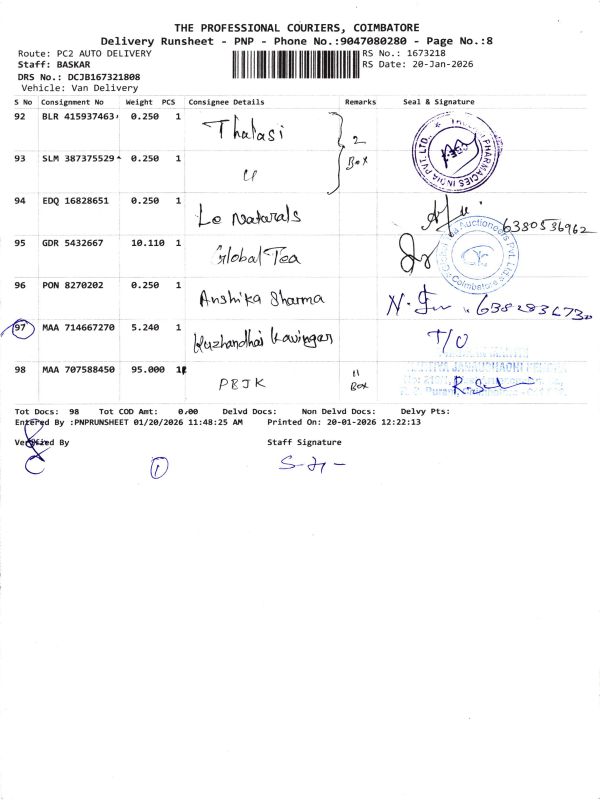 THE PROFESSIONAL COURIERS, COIMBATORE
Delivery Runsheet - PNP - Phone No.:9047080280 - Page No.:8
Route: PC2 AUTO DELIVERY RS No.: 1673218
Staff: BASKAR RS Date: 20-Jan-2026
DRS No.: DCJB167321808
Vehicle: Van Delivery
S No Consignment No Weight PCS Consignee Details Remarks Seal & Signature
92 BLR 415937463 0.250 1 Thalasi 2
93 SLM 387375529 0.250 1 " Box
94 EDQ 16828651 0.250 1 Le Naturals 6380536962
95 GDR 5432667 10.110 1 Global Tea
96 PON 8270202 0.250 1 Anshika Sharma
97 MAA 714667270 5.240 1 Kuzhandhai Kavingar T/O
98 MAA 707588450 95.000 1 PBJK 11 Box
Tot Docs: 98 Tot COD Amt: 0.00 Delvd Docs: Non Delvd Docs: Delvy Pts:
Entered By :PNPRUNSHEET 01/20/2026 11:48:25 AM Printed On: 20-01-2026 12:22:13
Verified By Staff Signature
1